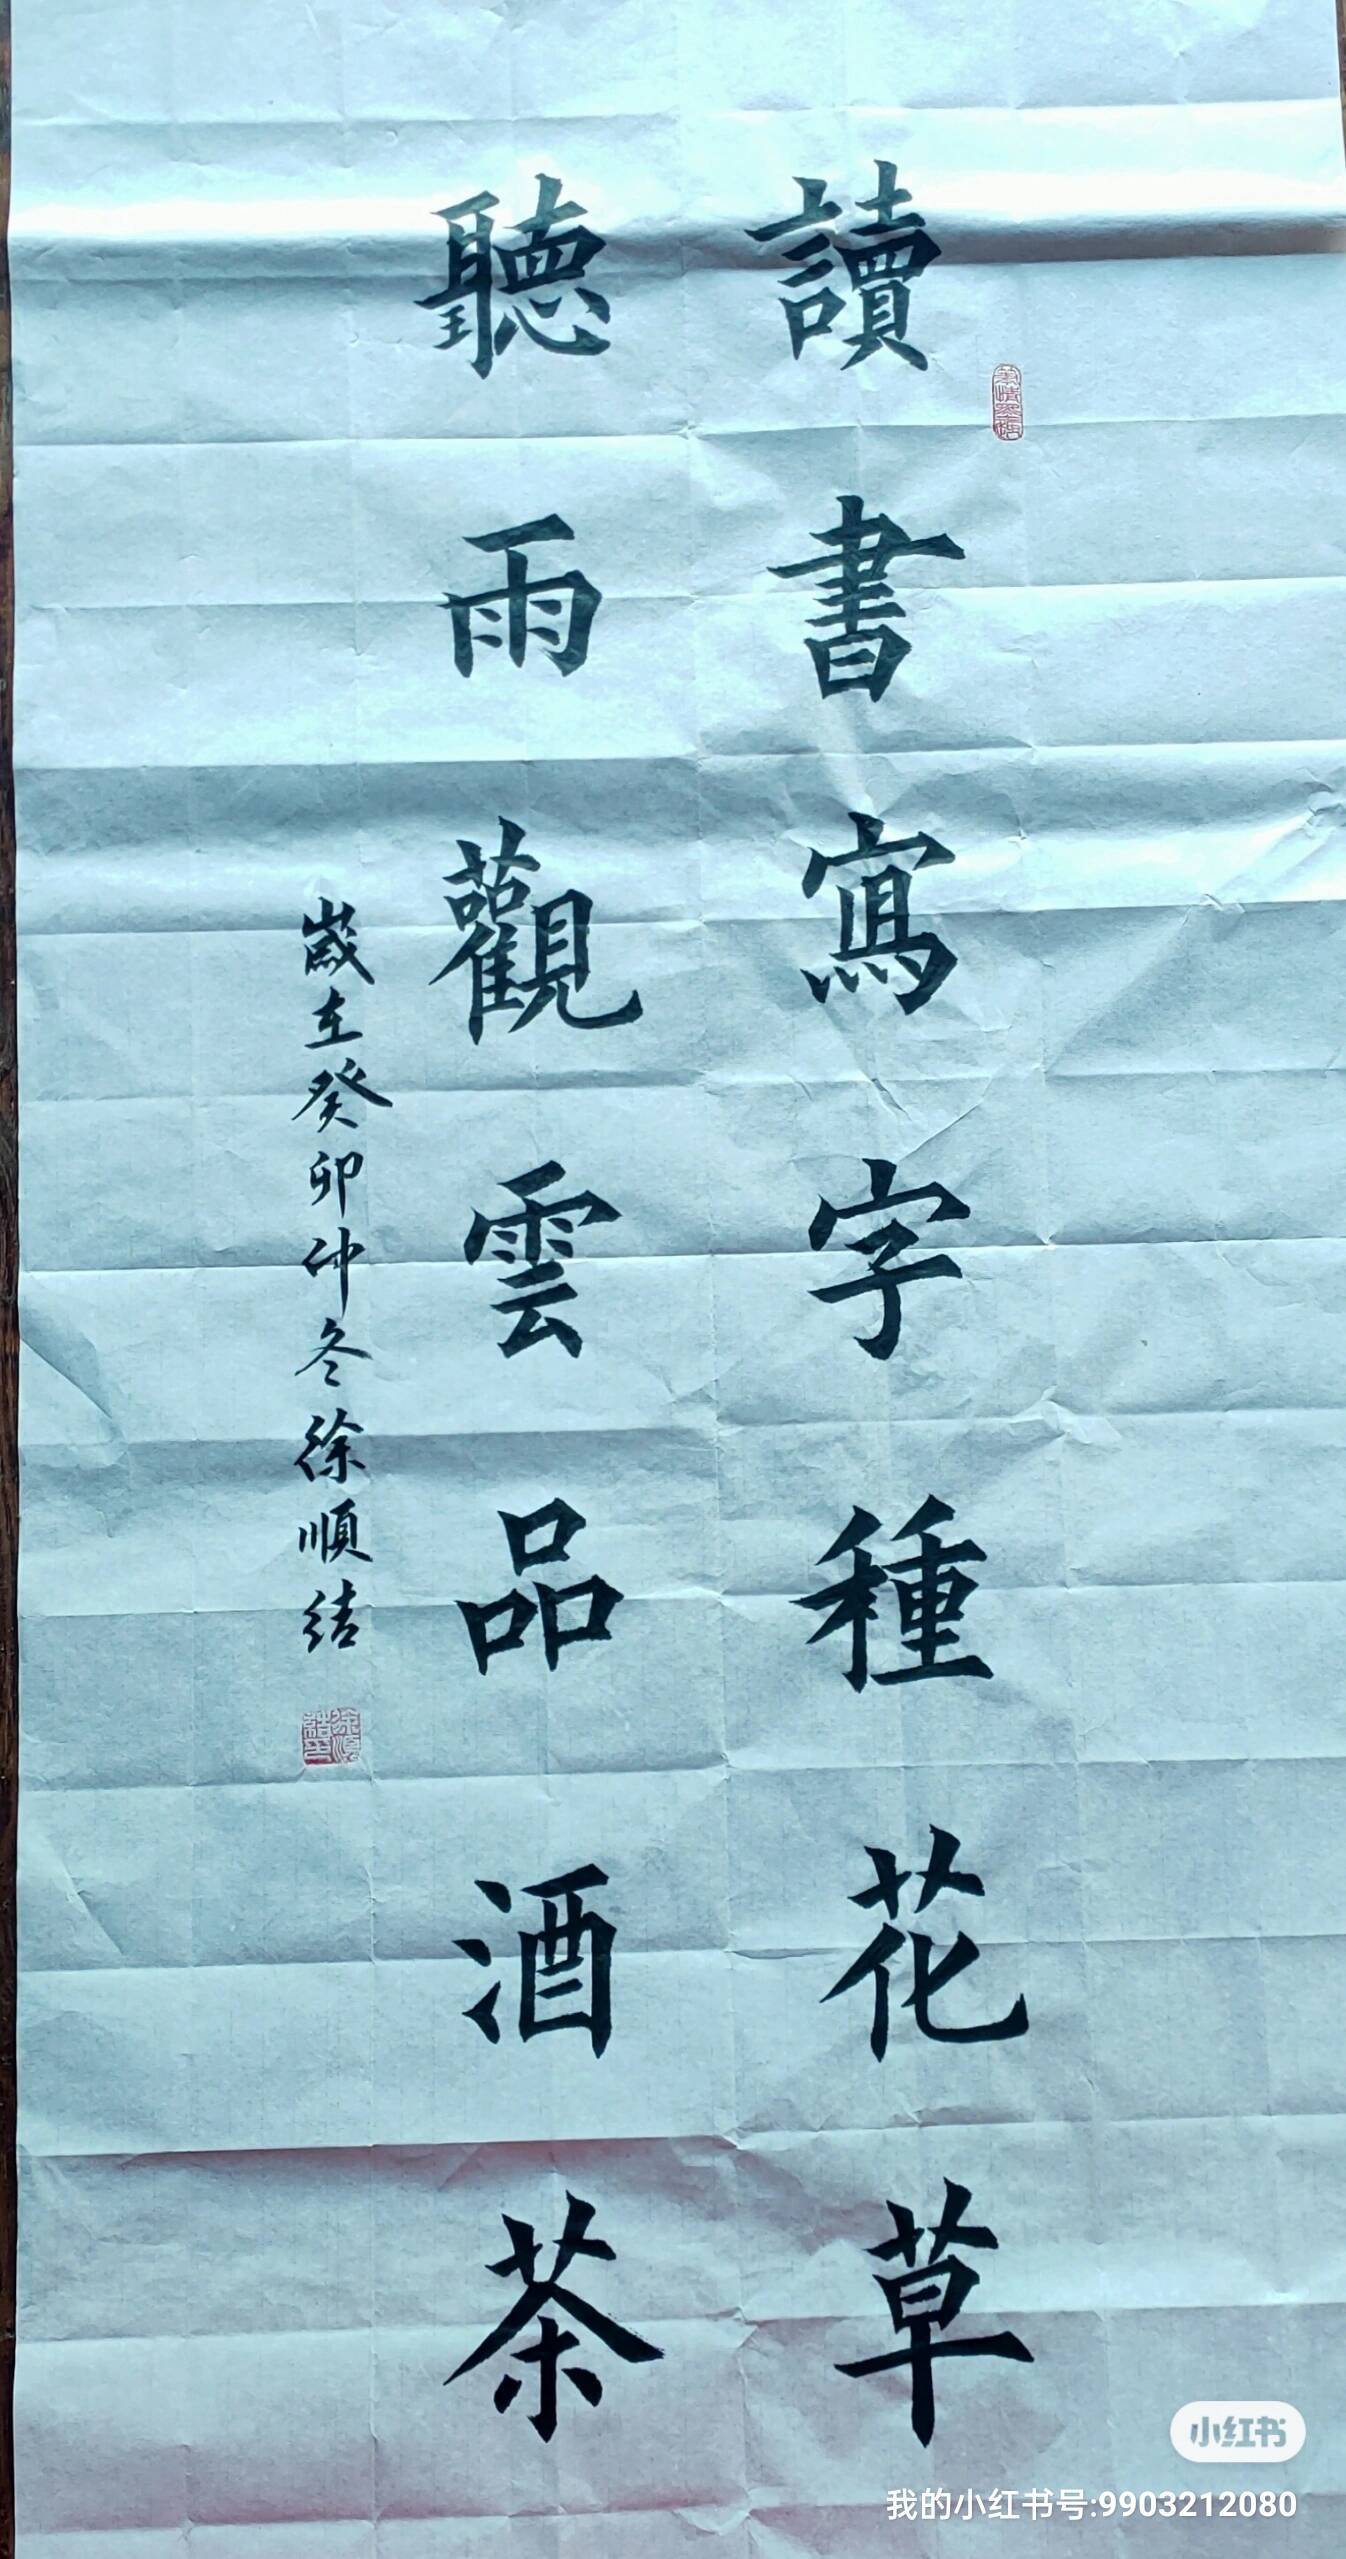 讀書寫字種花草
聽雨觀雲品酒茶
歲在癸卯仲冬徐順結
小红书
我的小红书号:9903212080